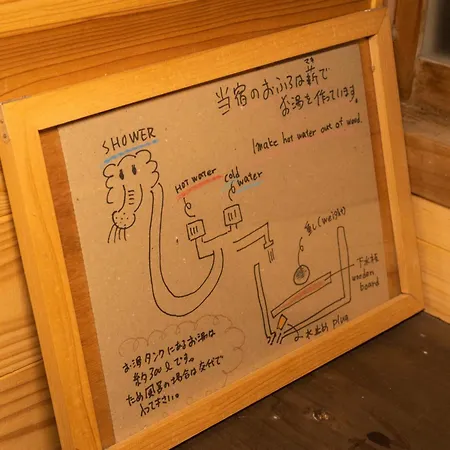 当宿のおふろは薪で
マキ
お湯を作っています。
I make hot water out of wood.
SHOWER
HOT water
cold
water
重し(weight)
下水板
wooden
board
水止め Plug
お湯タンクにあるお湯は
約300ℓです。
ため風呂の場合は交代で
って下さい。